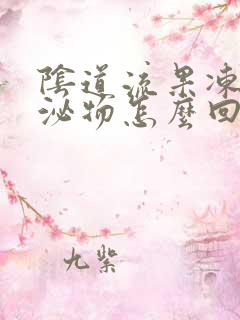 陰道流果凍
泌物怎麼回
九紫